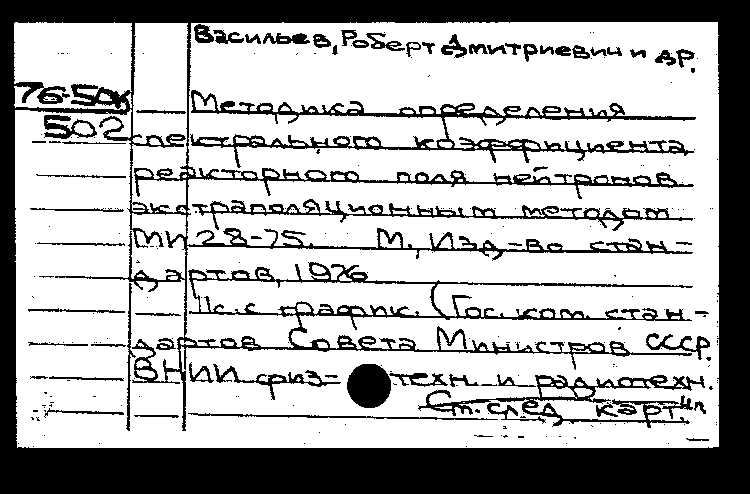 Васильев, Роберт Дмитриевич и др.
76-50к
502
Методика определения
спектрального коэффициента
реакторного поля нейтронов
экстраполяционным методом.
МИ 28-75. М., Изд-во стан-
дартов, 1976
11с. с график. (Гос. ком. стан-
дартов Совета Министров СССР.
ВНИИ физ= техн. и радиотехн.
См. след. карт.